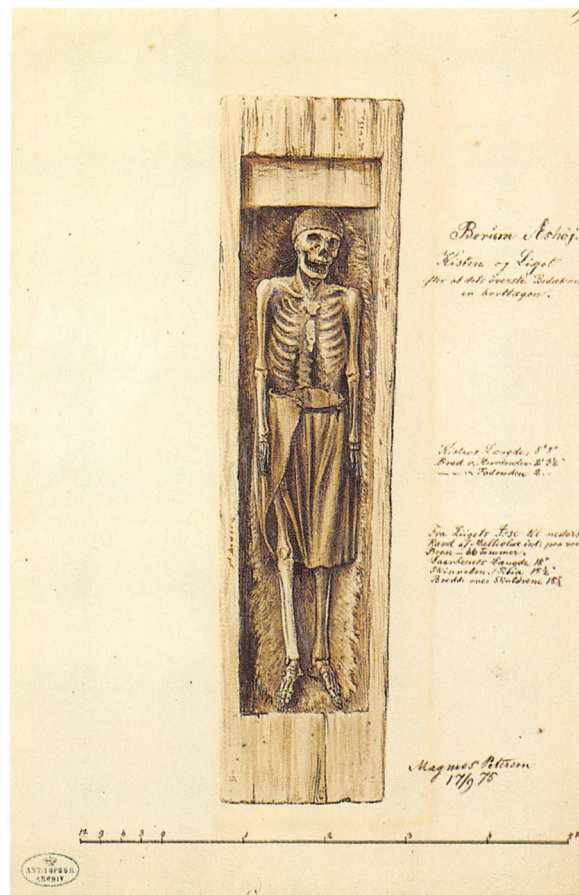 Borum Æshøj.
Kisten og Liget
efter at dets överste Bedæknin
er borttagen.
Kistens Længde, 8' 8"
Bred v. Hovedenden 2' 3½"
— — " Fodenden 2..
Fra Liigets Isse til neders
Kant af Malleolus int. paa ven
Been — 66 Tommer.
Laarbenets Længde 18"
Skinneben, Tibia 15½
Bredde over Skuldrene 15
Magnus Petersen
17/9 75
12 9 6 3 0 1 2 3 4 5 F
ANTIQ TOPOGR
ARCHIV